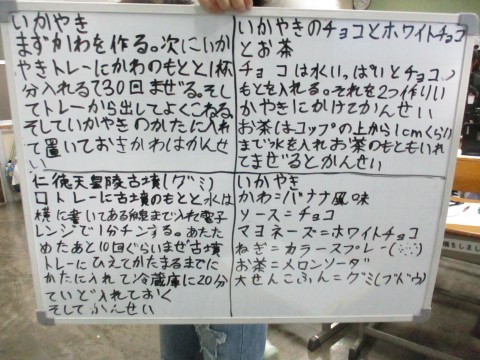 いかやき
まずかわを作る。次にいか
やきトレーにかわのもとと1杯
分入れるて30回まぜる。そし
てトレーから出してよくこねる。
そしていかやきのかたに入れ
て置いておきかわはかんせ
い
いかやきのチョコとホワイトチョコ
とお茶
チョコは水いっぱいとチョコの
もとを入れる。それを2つ作りい
かやきにかけてかんせい
お茶はコップの上から1cmくらい
まで水を入れお茶のもともいれ
てまぜるとかんせい
仁徳天皇陵古墳(グミ)
□トレーに古墳のもとと水は
横に書いてある線まで入れ電子
レンジで1分チンする。あたた
めたあと10回ぐらいまぜ古墳
トレーにひえてかたまるまでに
かたに入れて冷蔵庫に20分
ていど入れておく
そしてかんせい
いかやき
かわ=バナナ風味
ソース=チョコ
マヨネーズ=ホワイトチョコ
ねぎ=カラースプレー(∴∵)
お茶=メロンソーダ
大せんこふん=グミ(ブドウ)